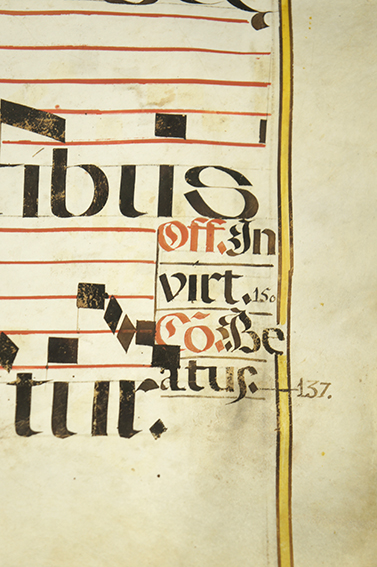 ribus
Off. In
virt. 150
Cō. Be
atus. 137.
tur.